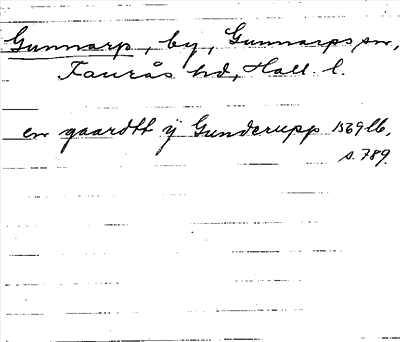 Gunnarp, by, Gunnarps sn,
Faurås hd, Hall. l.
en gaardtt ÿ Gunderupp 1569 lb.
s. 789.